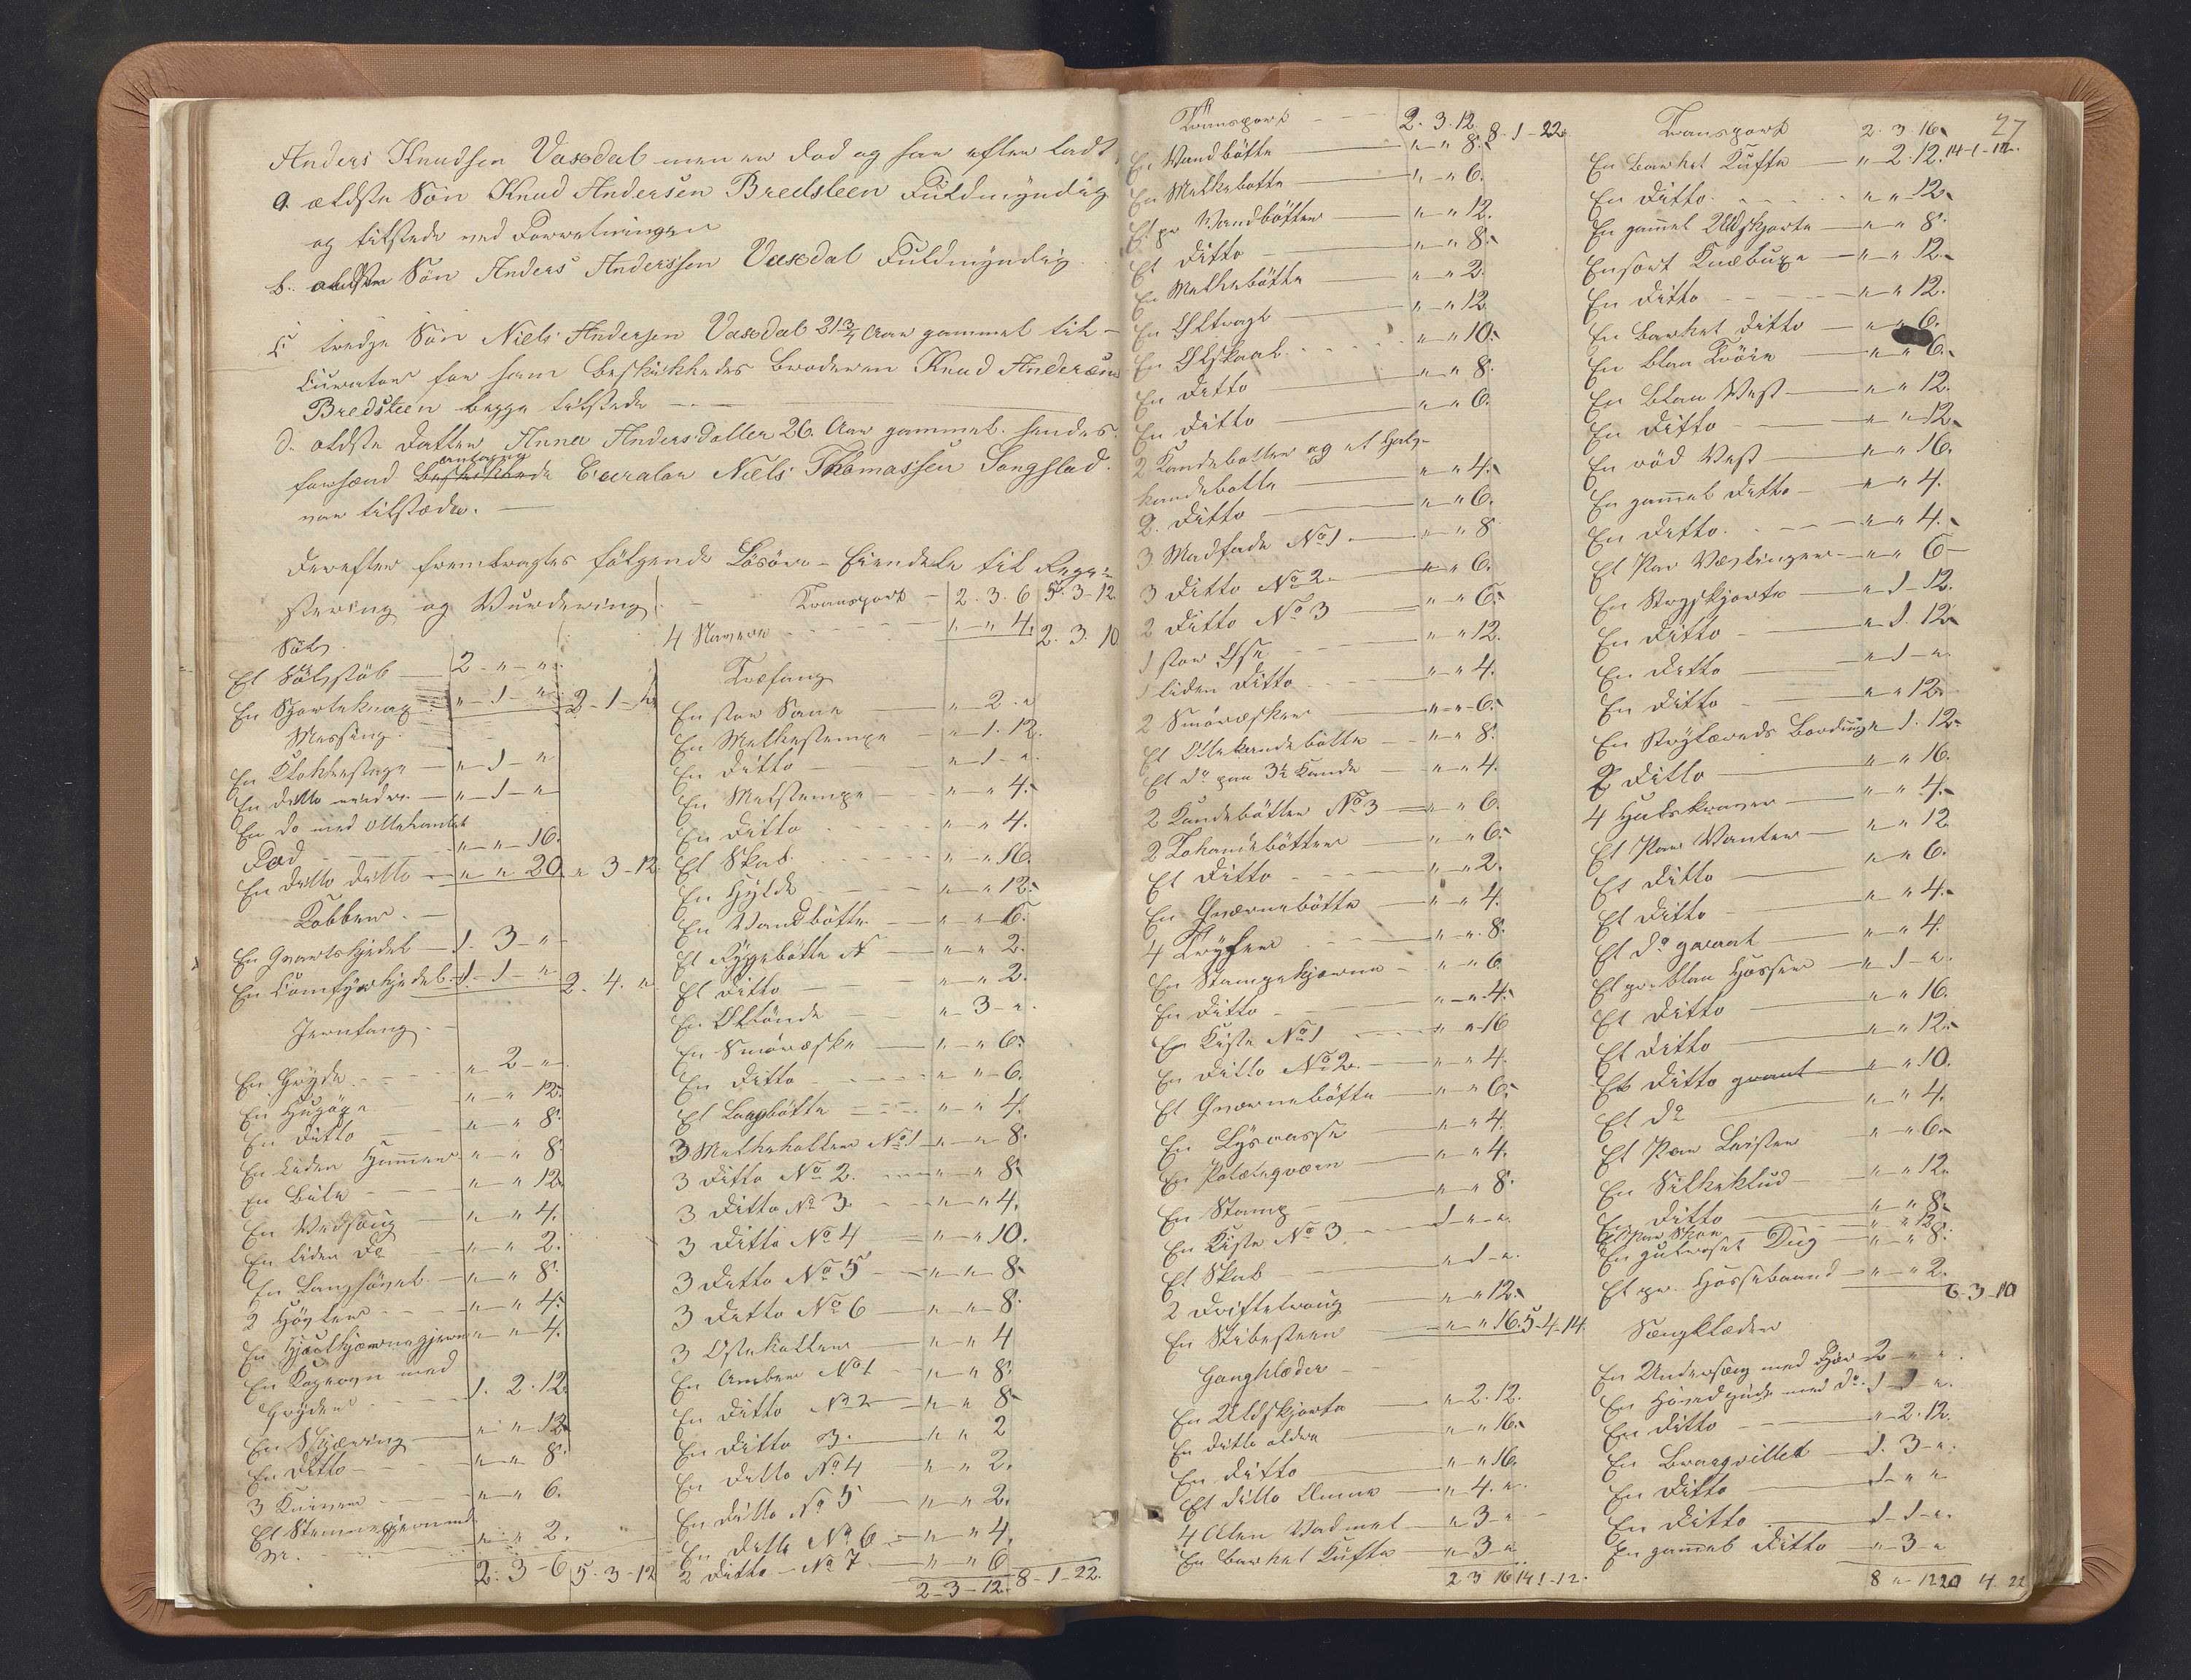 Anders Knudsen Vaxdal men er død og har efterladt
a. ældste Søn Knud Andersen Bredsteen Fuldmyndig
og tilstede ved Forretningen
b. ældste Søn Anders Anderssen Vaxdal Fuldmyndig
c tredje Søn Niels Andersen Vaxdal 21 3/4 Aar gammel til
Curator for ham beskikkedes Broderen Knud Andersen
Bredsteen begge tilstede
d. ældste Datter Anna Andersdatter 26. Aar gammel. hendes
antagne
forhænd Beskikkede Curator Niels Thomassen Langstad.
var tilstæde.
Derefter frembragtes følgende Løsøre-Eiendele til Regi-
strering og Vurdering
Sølv.
Et Sølvstøb 2 - " - "
En Skjorteknap " - 1 - " 2 - 1 - "
Messing.
En Klokkestage " - 1 - "
En ditto mindre " - 1 - "
En do med
Fad " - " - 16.
En ditto ditto " - " 20 " 3 - 12
Kobber.
En Qvartskjedel 1. 3 - "
En Comfyrkjedel 1 - 1 - " 2. 4. "
Jernfang.
En Gryde " - 2 - "
En Hugøxe " - " 12.
En Ditto " - " 8.
En liden Hammer " - " 8.
En Bile " - " 12
En Vedsaug " - " 4.
En liden Do " - " 2.
En Langhøvel " - " 8.
2 Høvler " - " 4.
En " - " 4.
En Kogeovn med
Gryder 1. 2. 12
En Skjæring " - " 12
En Ditto " - " 8.
3 Kniver " - " 6.
Et " - " 2.
2. 3 - 6 5. 3 - 12
Transport 2. 3. 6 5. 3 - 12.
4 Navere " - " 4. 2. 3. 10
Træfang
En stor Saae " - 2. "
En Melkestampe " - 1. 12.
En Ditto " - 1 - "
En Melstampe " - " 4.
En Ditto " - " 4.
Et Skab " - " 16.
En Hylde " - " 12.
En Vandbøtte " - " 6.
Et Ryggebøtte " - " 2.
Et Ditto " - " 2.
En Øltønde " - 3 - "
En Smøræske " - " 6.
En Ditto " - " 6.
Et Laagbøtte " - " 4.
3 Melkekoller No 1 " - " 8.
3 Ditto No 2. " - " 8.
3 Ditto No 3. " - " 4.
3 Ditto No 4 " - " 10.
3 Ditto No 5 " - " 8.
3 Ditto No 6 " - " 8.
3 Ostekoller " - " 4
En Amber No 1 " - " 8.
En Ditto No 2 " - " 8.
En Ditto 3. " - " 2
En Ditto No 4 " - " 2.
En Ditto No 5 " - " 2.
En Ditto No 6 " - " 4.
2 Ditto No 7 " - " 6
2 - 3 - 12. 8 - 1 - 22.
Transport 2. 3. 12. 8. 1 - 22
En Vandbøtte " - " 8.
En Melkebøtte " - " 6.
Et pr Vandbøtter " - " 12.
Et Ditto " - " 8.
En Melkebøtte " - " 2
En Øltragt " - " 12
En Ølskaal " - " 10.
En Ditto " - " 8.
En Ditto " - " 6.
2 Kandebøtter og et Halv-
kandebøtte " - " 4.
2. Ditto " - " 6.
3 Madfade No 1 " - " 8
3 Ditto No 2 " - " 6.
2 Ditto No 3 " - " 6.
1 stor Øse " - " 12.
1 liden Ditto " - " 4.
2 Smøræsker " - " 6.
Et Ottekandebøtte " - " 8.
Et do paa 3½ Kande " - " 4.
2 Kandebøtter No 3 " - " 6.
2 Tokandebøtter " - " 6.
Et Ditto " - " 2.
En Qvernebøtte " - " 4.
4 " - " 8.
En Stampekjærne " - " 6
En Ditto " - " 4.
En Kiste No 1 " - " 16
En Ditto No 2. " - " 4.
Et Qvernebøtte " - " 6.
En Lysvasse " - " 4.
En Potætesqværn " - " 4.
En Stamp " - " 8.
En Kiste No 3 1 - " - "
Et Skab " - 1 - "
2 Driftetroug " - " 12.
En Slibesteen " - " 16. 5 - 4 - 14
Gangklæder
En Uldskjorte " - 2. 12.
En Ditto ældre " - " 16.
En Ditto " - " 16.
Et Ditto " - 4. "
4 Alen Vadmel " - 3 - "
En barket Kufte " - 3 - "
2 3 16 14 1 - 12.
27
Transport 2. 3 16. 14 - 1 - 12.
En barket Kufte " 2. 12.
En Ditto " - " 12.
En gammel Uldskjorte " - " 8.
En sort Knæbuxe " - " 12.
En Ditto " - " 12.
En barket Ditto " - " 6.
En blaa Trøie " - " 6.
En blaa Vest " - " 12.
En Ditto " - " 12.
En rød Vest " - " 16.
En gammel Ditto " - " 4.
En Ditto " - " 4.
Et Par Væslinger " - " 6
En Strieskjorte " - 1 - 12.
En Ditto " - 1. 12.
En Ditto " - 1 - "
En Ditto " - " 12.
En Strielæreds Bordduge 1. 12.
2 Ditto " - " 16.
4 Halskraver " - " 4.
Et Par Vanter " - " 12
Et Ditto " - " 6.
Et Ditto " - " 4.
Et Do graat " - " 4.
Et pr. blaa Hosser " - 1 - "
Et Ditto " - " 16.
Et Ditto " - " 12.
Et Ditto graat " - " 10.
Et Do " - " 4.
Et Par Leister " - " 6.
En Silkeklud " - " 12.
En Ditto " - " 8.
Et Par Skoe " - " 12
En gulroset Dug " - " 8.
Et pr. Hossebaand " - " 2.
6. 3 - 10
Sængklæder
En Undersæng med Fjær 2 - " - "
En Hovedpude med do. 1 - 1 - "
En Ditto " - 2. 12
En Brangvillet 1. 3 - "
En Ditto 1 - " - "
En Ditto 1 - 1 - "
En gammel Ditto " - 3 - "
8 " - 12 20 4. 22